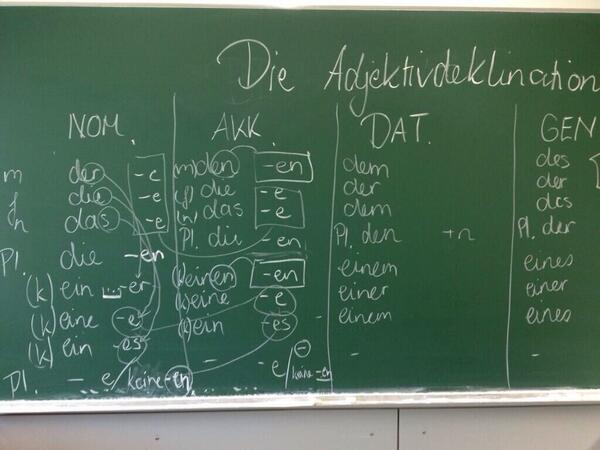 Die Adjektivdeklination
NOM. AKK. DAT. GEN
m der -e m) den -en dem des
f die -e (f) die -e der der
n das -e (n) das -e dem des
Pl. die -en Pl. die -en Pl. den +n Pl. der
(k) ein -er (k) einen -en einem eines
(k) eine -e (k) eine -e einer einer
(k) ein -es (k) ein -es - einem eines
Pl. - e/keine -en - -e/keine -en - -